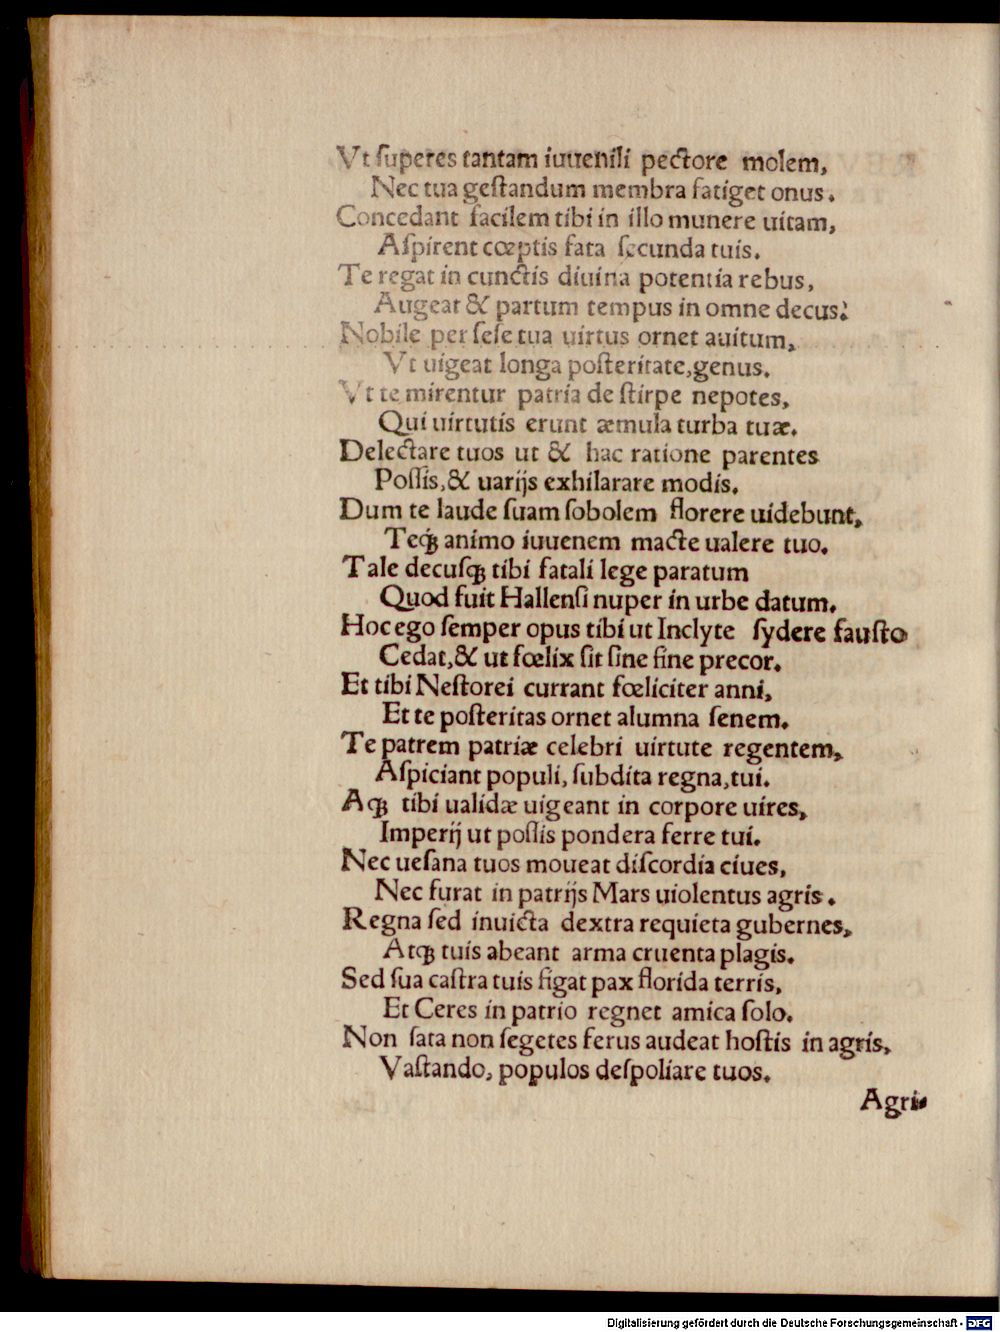 Vt ſuperes tantam iuuenili pectore molem,
Nec tua geſtandum membra fatiget onus.
Concedant facilem tibi in illo munere uitam,
Aſpirent cœptis fata ſecunda tuis.
Te regat in cunctis diuina potentia rebus,
Augeat & partum tempus in omne decus.
Nobile per ſeſe tua uirtus ornet auitum,
Vt uigeat longa poſteritate, genus.
Vt te mirentur patria de ſtirpe nepotes,
Qui uirtutis erunt æmula turba tuæ.
Delectare tuos ut & hac ratione parentes
Poſſis, & uarijs exhilarare modis.
Dum te laude ſuam ſobolem florere uidebunt,
Teq́ꝫ animo iuuenem macte ualere tuo.
Tale decuſq́ꝫ tibi fatali lege paratum
Quod fuit Hallenſi nuper in urbe datum.
Hoc ego ſemper opus tibi ut Inclyte ſydere fauſto
Cedat, & ut fœlix ſit ſine fine precor.
Et tibi Neſtorei currant fœliciter anni,
Et te poſteritas ornet alumna ſenem.
Te patrem patriæ celebri uirtute regentem,
Aſpiciant populi, ſubdita regna, tui.
Aq́ꝫ tibi ualidæ uigeant in corpore uires,
Imperij ut poſſis pondera ferre tui.
Nec ueſana tuos moueat diſcordia ciues,
Nec furat in patrijs Mars uiolentus agris.
Regna ſed inuicta dextra requieta gubernes,
Atq́ꝫ tuis abeant arma cruenta plagis.
Sed ſua caſtra tuis figat pax florida terris,
Et Ceres in patrio regnet amica ſolo.
Non ſata non ſegetes ferus audeat hoſtis in agris,
Vaſtando, populos deſpoliare tuos.
Agri-
Digitalisierung gefördert durch die Deutsche Forschungsgemeinschaft - DFG